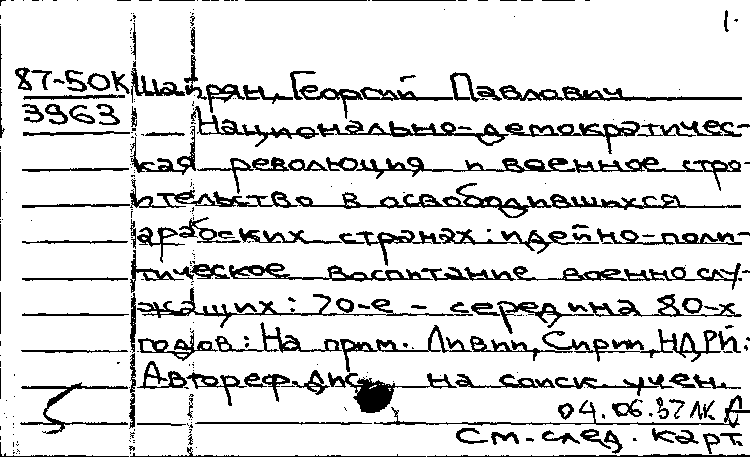 1.
87-50К Шапрян, Георгий Павлович
3963 Национально-демократичес-
кая революция и военное стро-
ительство в освободившихся
арабских странах: идейно-поли-
тическое воспитание военнослу-
жащих: 70-е - середина 80-х
годов: На прим. Ливии, Сирии, НДРЙ:
Автореф. дис. на соиск. учен.
5 04.06.87
См. след. карт.